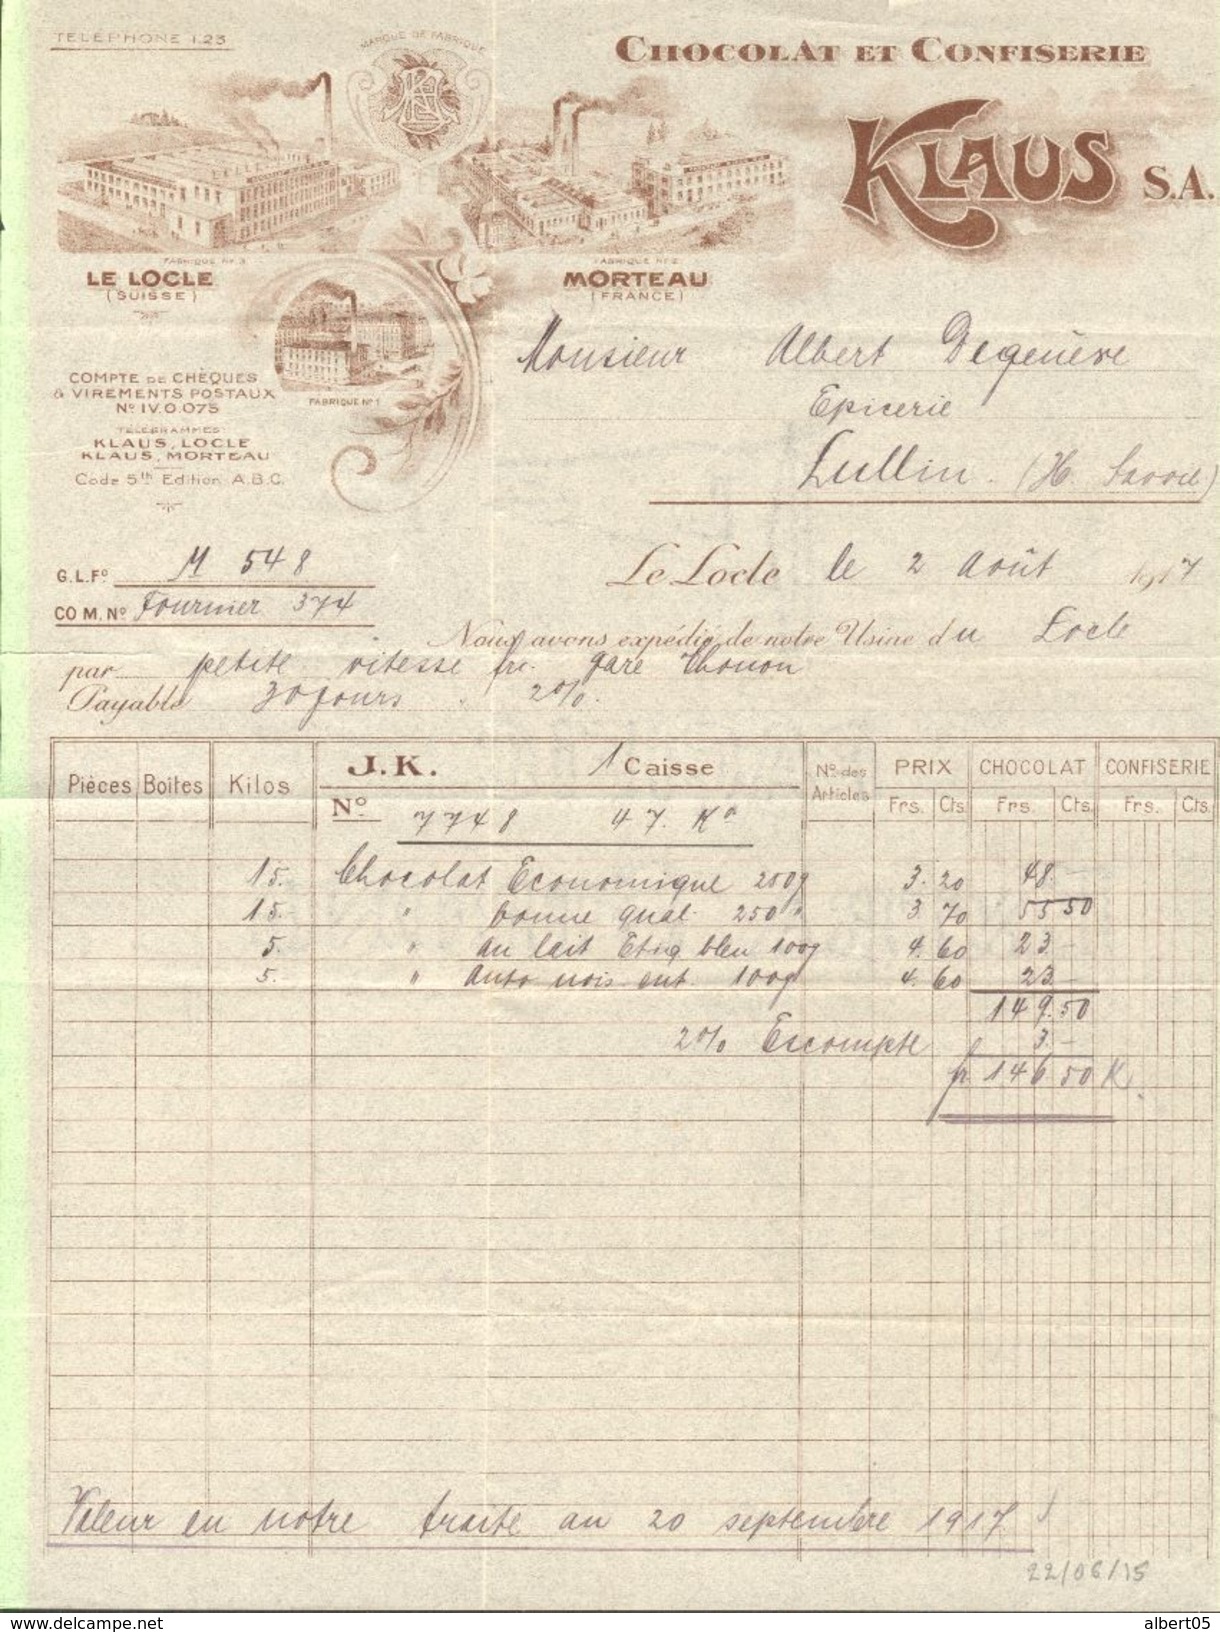 TÉLÉPHONE 1.23
MARQUE DE FABRIQUE
CHOCOLAT ET CONFISERIE
KLAUS S.A.
FABRIQUE Nº 3
LE LOCLE
(SUISSE)
FABRIQUE Nº 2
MORTEAU
(FRANCE)
FABRIQUE Nº 1
COMPTE DE CHÈQUES
& VIREMENTS POSTAUX
Nº IV.O.075
TÉLÉGRAMMES:
KLAUS, LOCLE
KLAUS, MORTEAU
Code 5th Edition A.B.C.
Monsieur Albert Degenève
Epicerie
Lullin. (Hte Savoie)
G.L.Fº M 548
COM.Nº Fournier 374
Le Locle le 2 Août 1917
Nous avons expédié de notre Usine du Locle
par petite vitesse fco. gare Thonon
Payable 30 jours 2%.
Pièces Boîtes Kilos J.K. 1 Caisse Nº des Articles PRIX CHOCOLAT CONFISERIE
Frs. Cts. Frs. Cts. Frs. Cts.
Nº 7748 47. Kº
15. Chocolat Economique 250g 3.20 48.-
15. " bonne qual. 250 " 3.70 55 50
5. " au lait Etiq bleu 100g 4.60 23
5. " 100g 4.60 23.-
149.50
2% Escompte 3.-
fr. 146 50 K.
Valeur en notre traite au 20 septembre 1917
22/06/15
albert05